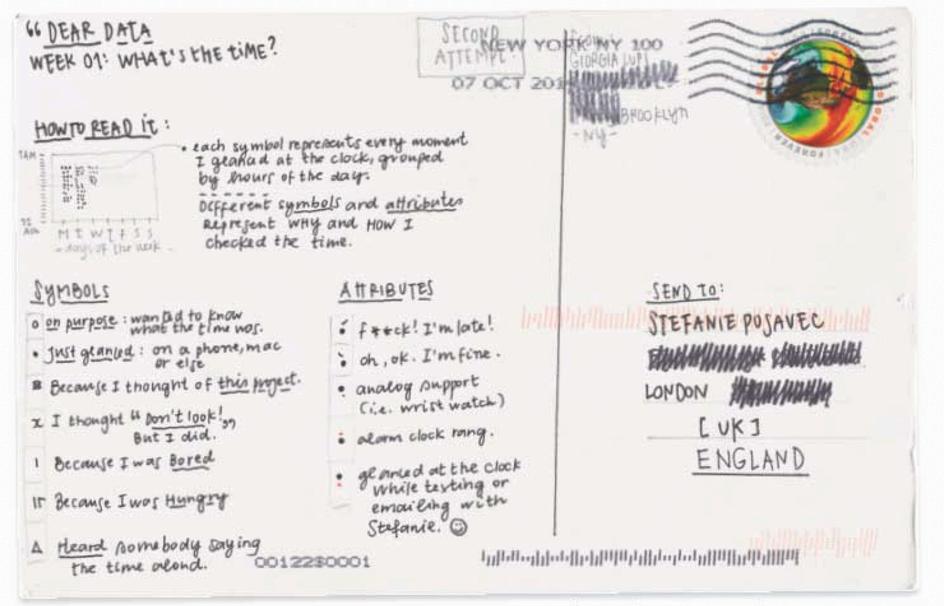 “ DEAR DATA
WEEK 01: WHAT'S the tiME?
SECOND
ATTEMPT
NEW YORK NY 100
07 OCT 201
FROM:
GIORGIA LUPI
BROOKlyn
- NY -
HOW TO READ it :
1 AM
M T W T F S S
- days of the week -
• each symbol represents every moment
I glanced at the clock, grouped
by hours of the day.
Different symbols and attributes
Represent WHY and HOW I
checked the time.
SYMBOLS
on purpose : wanted to know
what the time was.
Just glanced : on a phone, mac
or else
Because I thought of this project.
x I thought “Don't look!„
But I did.
Because I was Bored
Because I was Hungry
Δ Heard somebody saying
the time aloud.
AttRIBUTES
f**ck! I'm late!
oh, ok. I'm fine.
analog support
(i.e. wrist watch)
alarm clock rang.
glanced at the clock
while texting or
emailing with
Stefanie. ☺
SEND TO:
STEFANIE POSAVEC
LONDON
[ UK ]
ENGLAND
00122$0001